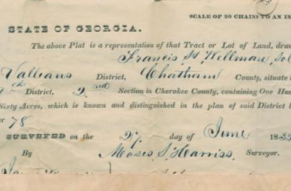 SCALE OF 20 CHAINS TO AN IN
STATE OF GEORGIA.
The above Plat is a representation of that Tract or Lot of Land, draw
Francis H Wellman
District, Chatham County, situate
District, Section in Cherokee County, containing One Hun
Sixty Acres, which is known and distinguished in the plan of said District
78
SURVEYED on the 27 day of June 18
By Moses S Harriss, Surveyor.